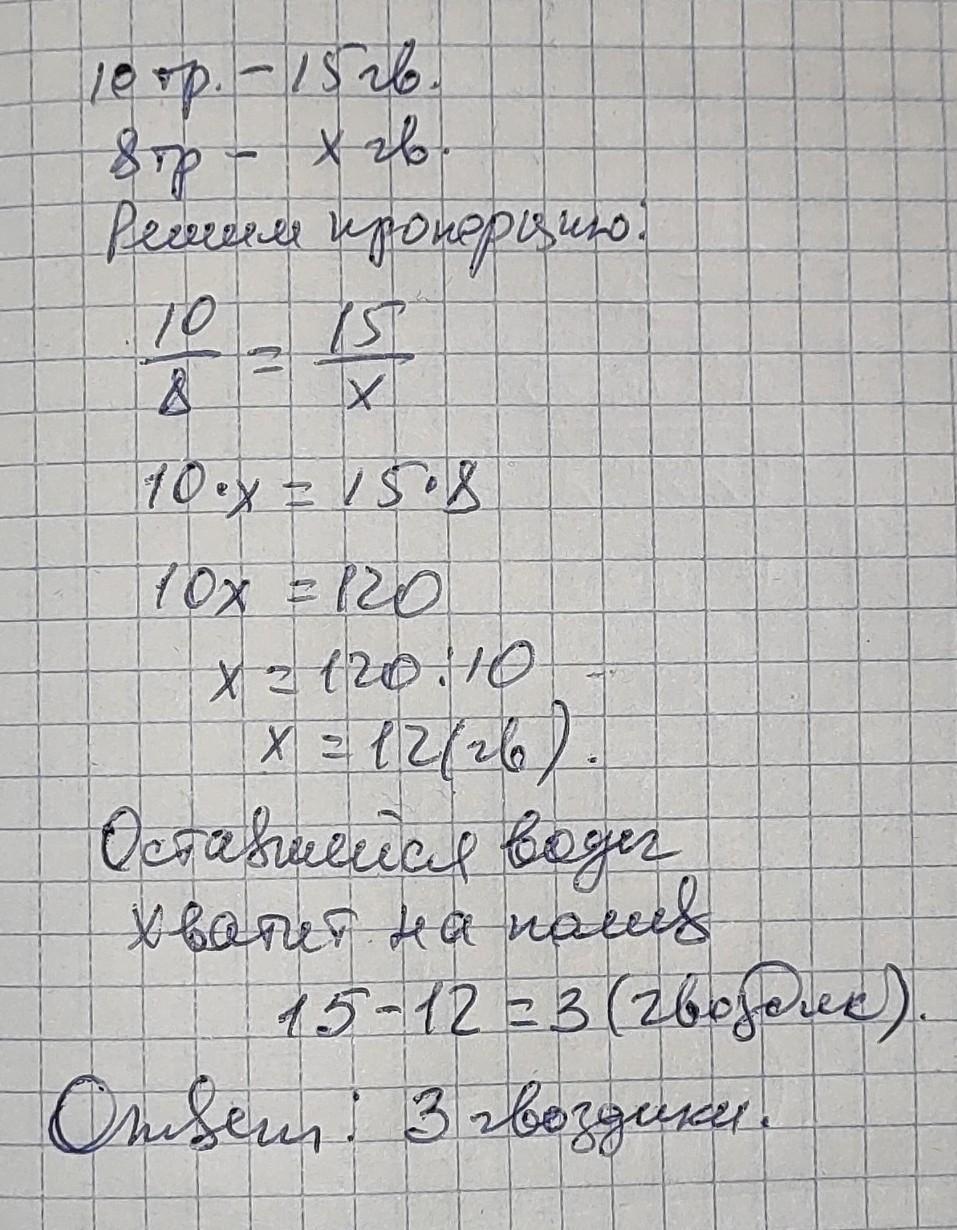 10 тр. – 15 гв.
8 тр – x гв.
Решим пропорцию:
10/8 = 15/x
10·x = 15·8
10x = 120
x = 120:10
x = 12 (гв).
Оставшейся воды
хватит на полив
15-12 = 3 (гвоздик).
Ответ: 3 гвоздики.